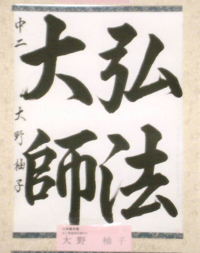 弘法
大師
中二 大野柚子
大野 柚子